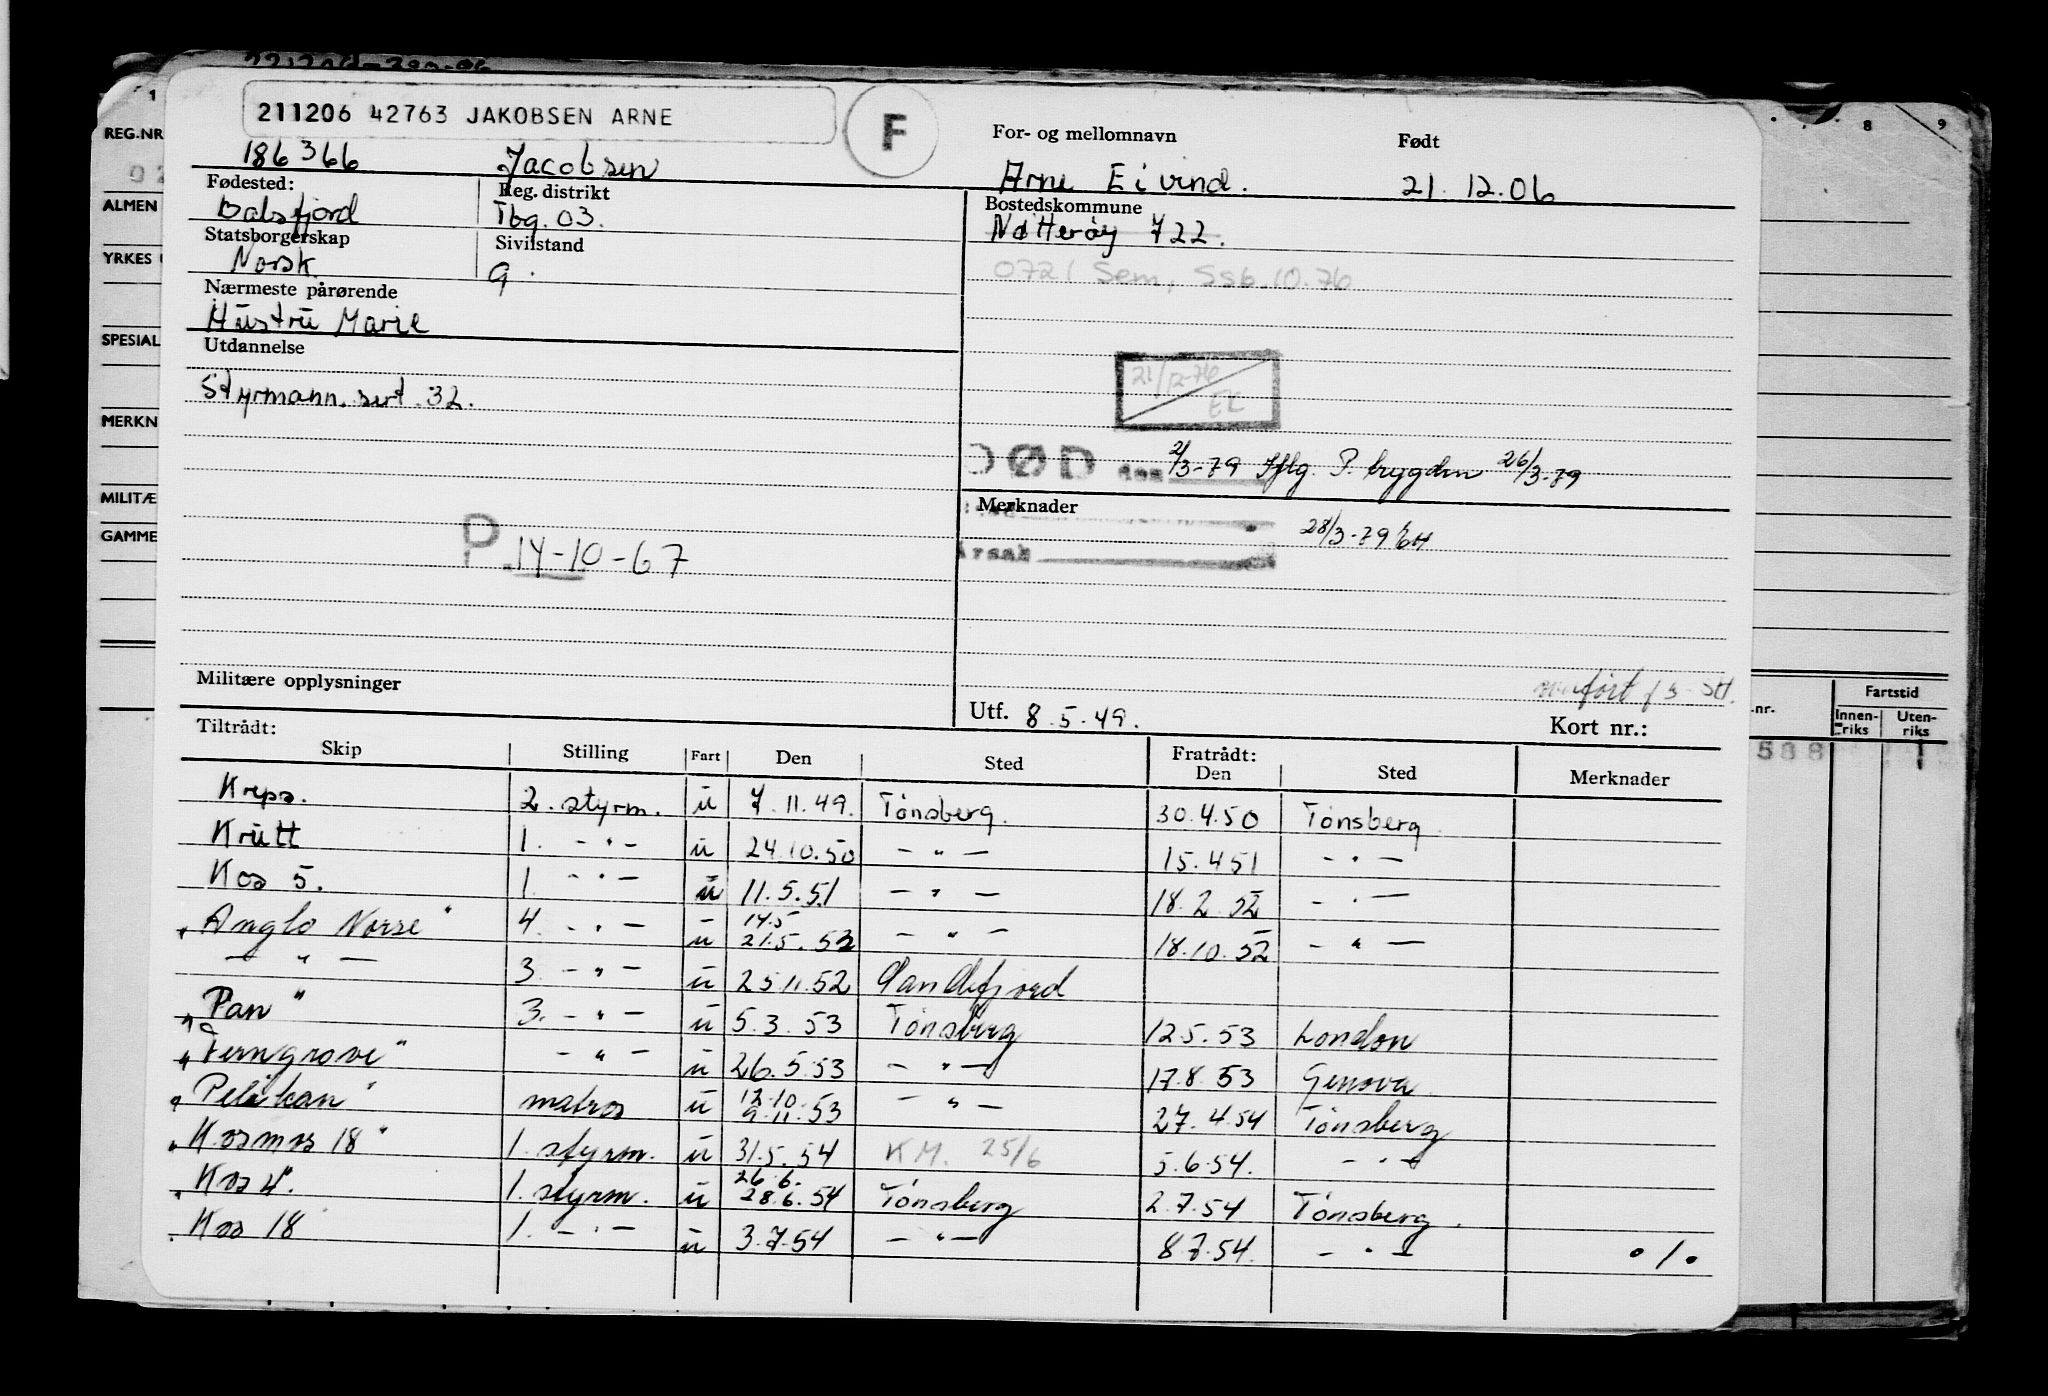 211206 42763 JAKOBSEN ARNE
F
For- og mellomnavn
Født
186366 Jacobsen Arne Eivind. 21.12.06
Fødested: Reg. distrikt Bostedskommune
Balsfjord Tbg. 03. Nøtterøy 722.
Statsborgerskap Sivilstand
Norsk. g. 0721 Sem, Ssb.10.76
Nærmeste pårørende
Hustru Marie
Utdannelse
Styrmann.sert.32.
21/12-76 EK
DØD den 2/3-79 Iflg. P. trygden 26/3-79
Merknader
28/3-79 EH
Årsak
P. 14-10-67
Militære opplysninger
overført
Utf. 8.5.49.
Kort nr.:
Tiltrådt: Fratrådt:
Skip Stilling Fart Den Sted Den Sted Merknader
Kreps. 2. styrm. u 7.11.49. Tønsberg. 30.4.50 Tønsberg.
Krutt 1. - " - u 24.10.50 - " - 15.4.51 - " -
Kos 5. 1. - " - u 11.5.51 - " - 18.2.52 - " -
"Anglo Norse" 4. - " - u 14.5 21.5.52 - " - 18.10.52 - " -
- " - 3. - " - u 25.11.52 Sandefjord
"Pan" 3. - " - u 5.3.53 Tønsberg 12.5.53 London
"Ferngrove" - " - u 26.5.53 - " - 17.8.53 Genova
"Pelikan" matros u 12.10. 9.11.53 - " - 27.4.54 Tønsberg
"Kosmos 18" 1. styrm. u 31.5.54 KM. 25/6 5.6.54. - " -
"Kos 4". 1. styrm. u 26.6. 28.6.54 Tønsberg 2.7.54 Tønsberg.
"Kos 18 1. - " - u 3.7.54 - " - 8.7.54. - " - ./.
1
8
9
REG.NR
ALMEN
YRKES
SPESIAL
MERKN
MILITÆ
GAMME
.nr.
Fartstid
Innen-riks
Uten-riks
588
1